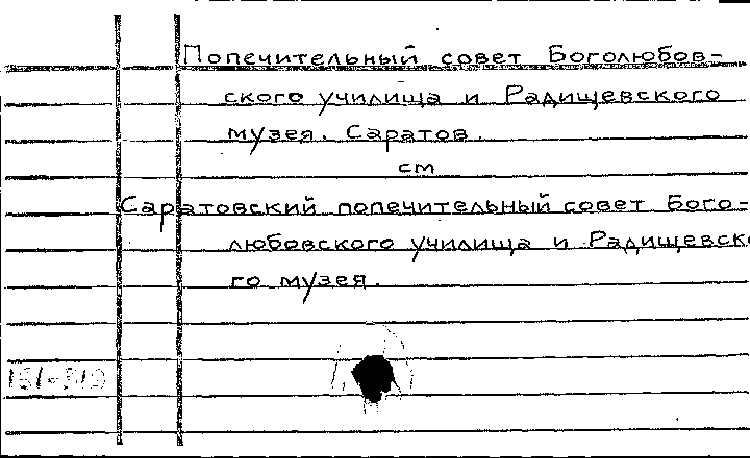 Попечительный совет Боголюбов-
ского училища и Радищевского
музея. Саратов.
см
Саратовский попечительный совет Бого-
любовского училища и Радищевско
го музея.